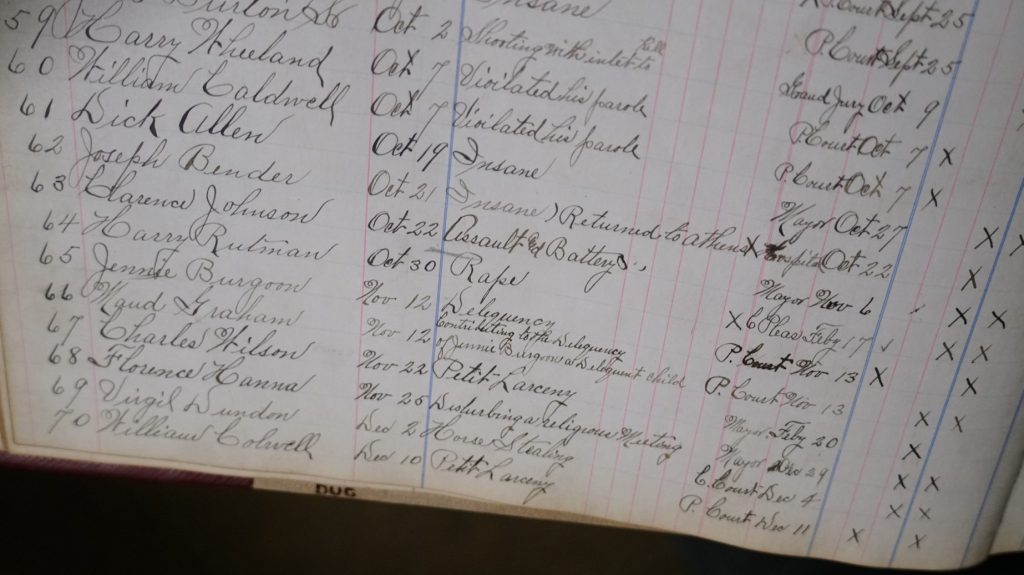 Burton Insane P. Court Sept 25
59 Harry Wheeland Oct 2 Shooting with intet to kill P. Court Sept 25
60 William Caldwell Oct 7 Violated his parole Grand Jury Oct 9
61 Dick Allen Oct 7 Violated his parole P. Court Oct 7 X
62 Joseph Bender Oct 19 Insane P. Court Oct 7 X
63 Clarence Johnson Oct 21 Insane) Returned to athens Mayor Oct 27 X X
64 Harry Rutman Oct 22 Assault & Battery X Hospital Oct 22 X
65 Jennie Burgoon Oct 30 Rape Mayor Nov 6 X X
66 Maud Graham Nov 12 Delequency X C Pleas Feby 17 X X
67 Charles Wilson Nov 12 Contributing to the Delequency of Jennie Burgoon a Delequent child P. Court Nov 13 X X
68 Florence Hanna Nov 22 Petit Larceny P. Court Nov 13 X X
69 Virgil Dundon Nov 25 Disturbing a religious Meeting Mayor Feby 20 X
70 William Colwell Dec 2 Horse Stealing Mayor Dec 29 X X
Dec 10 Petit Larceny C. Court Dec 4 X X
P. Court Dec 11 X X
DUG